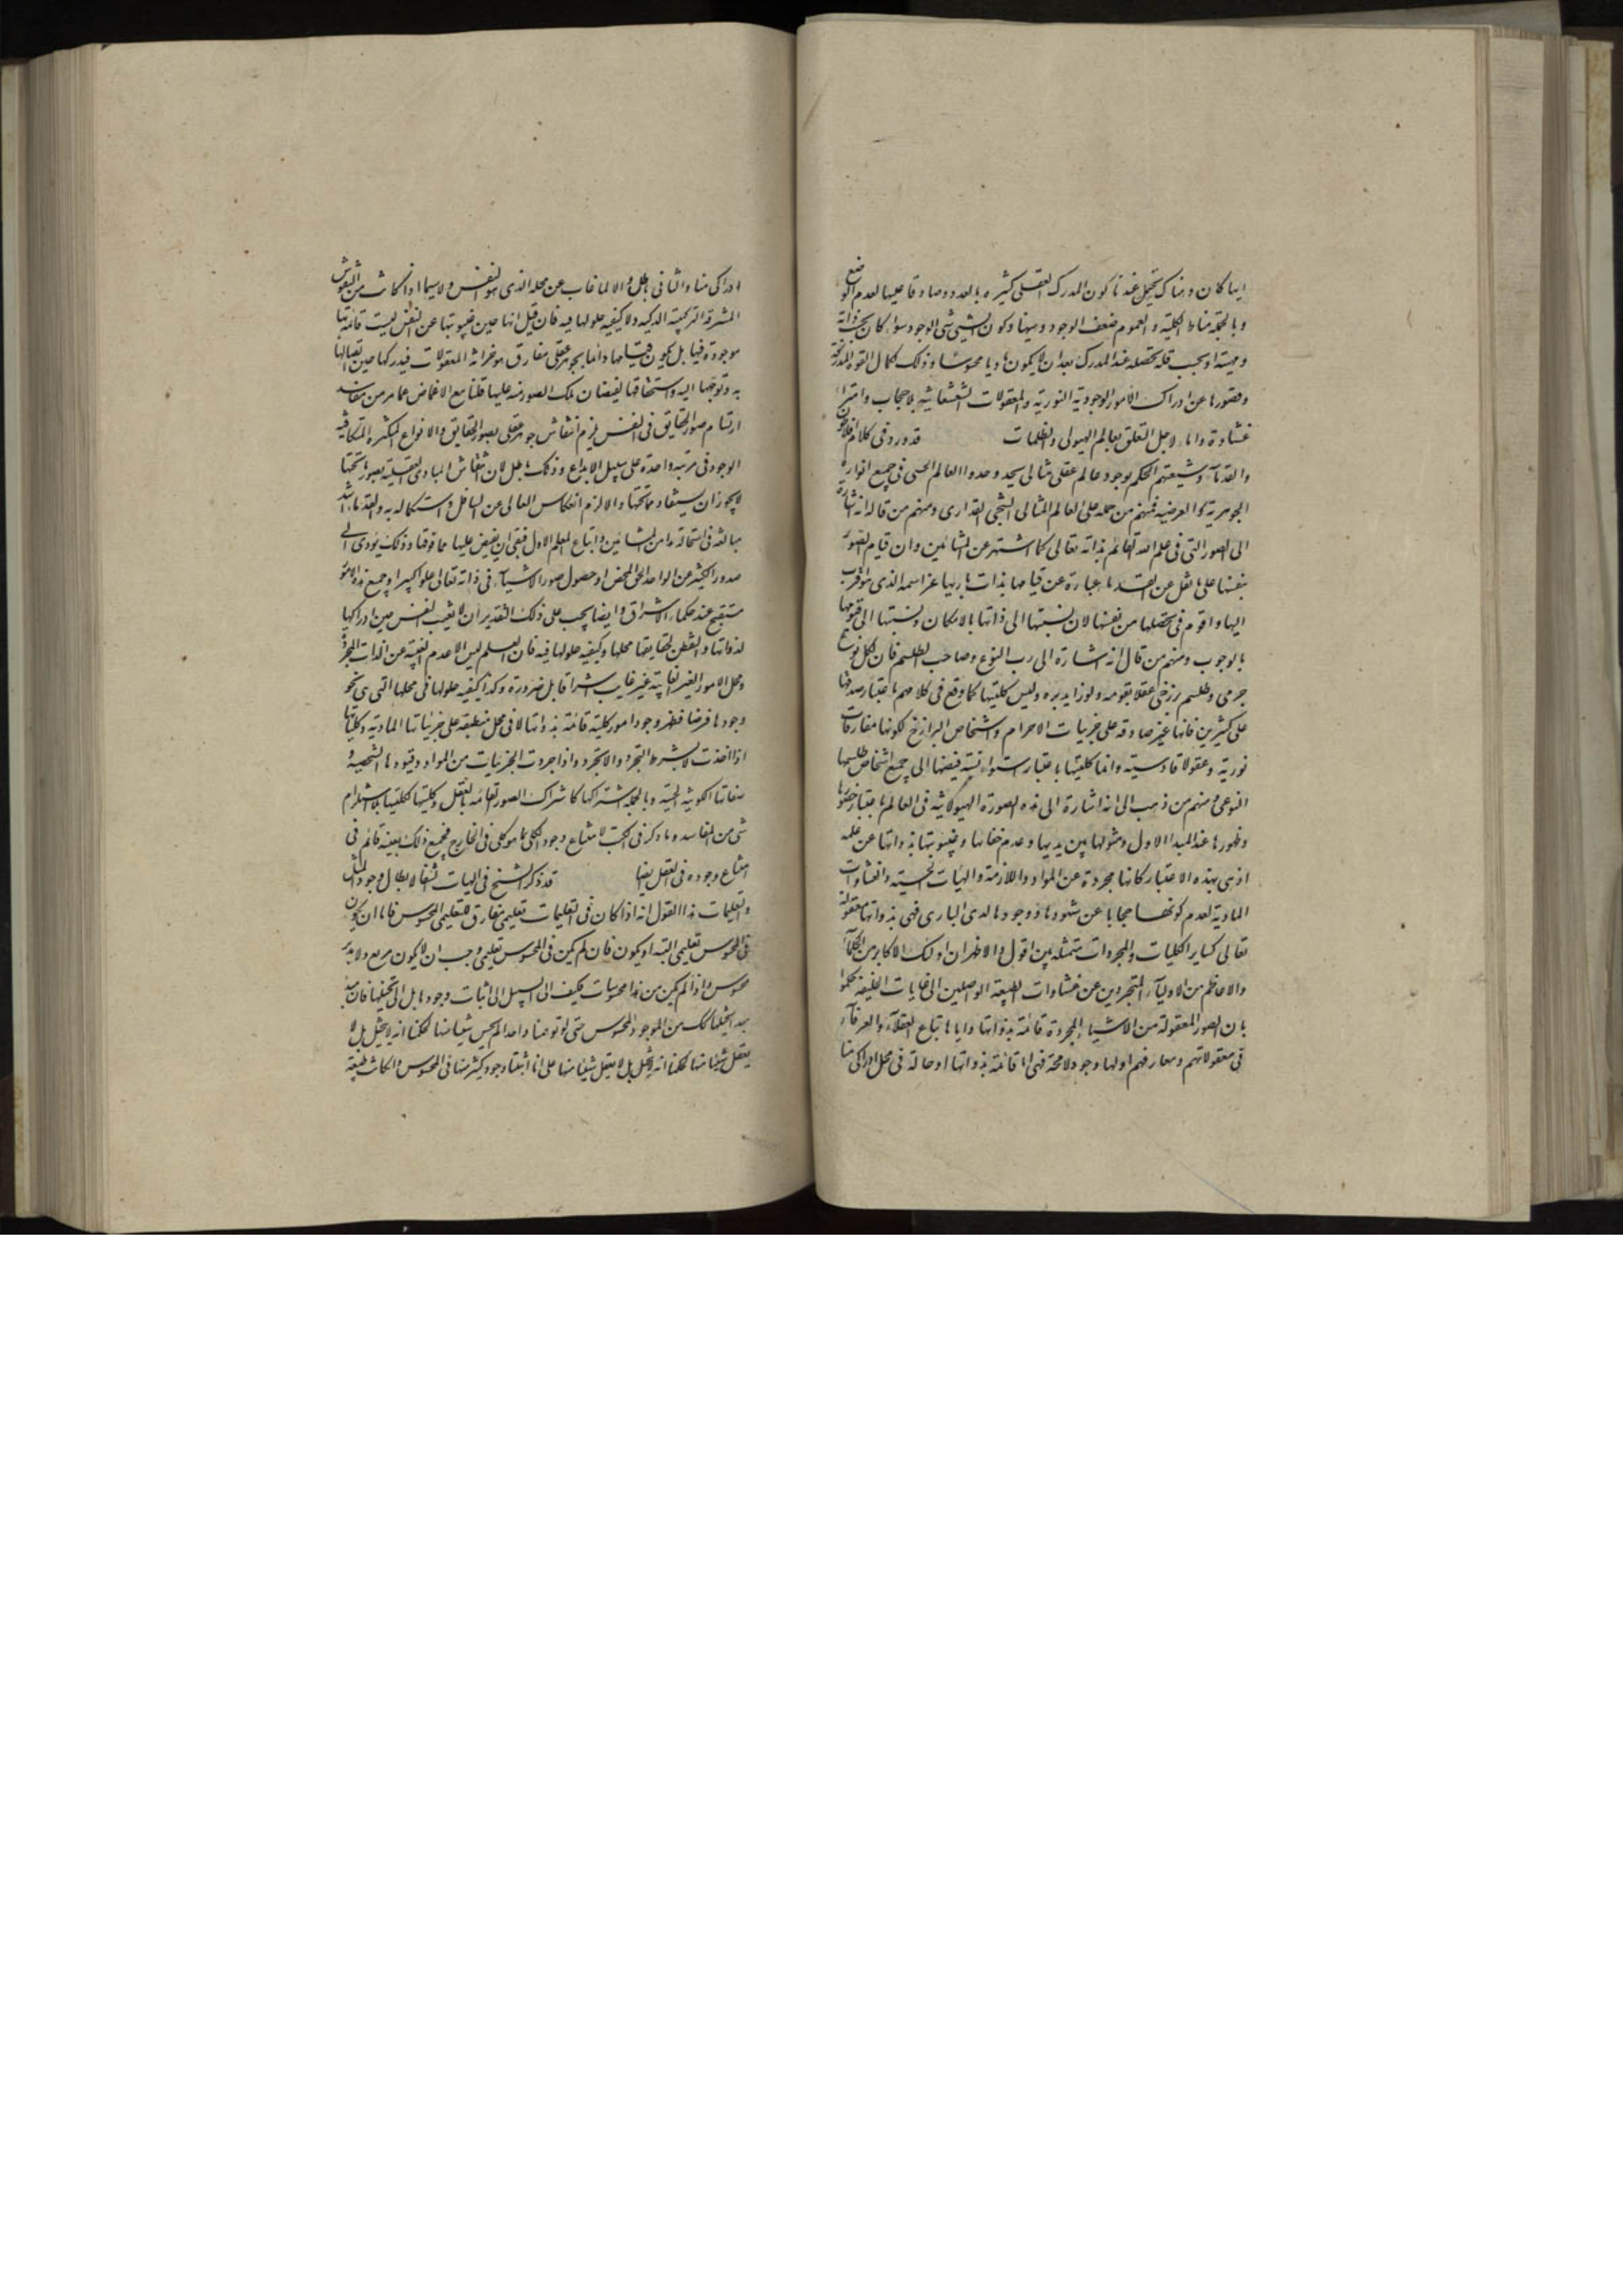 ايما كان وهناك يحتمل عندنا كون المدرك العقلى كثيره بالعدد وصادقا عليها لعدم الوضع
وبالجملة مناط الكلية والعموم ضعف الوجود ووهنها وكون الشىء شئى الوجود سواء كان بحسب ذاته
ومهيته او بحسب قلة تحصله عند المدرك بعد ان لا يكون ماديا محسوسا وذلك لكلال القوة المدركة
وقصورها عن ادراك الامور الوجودية النورية والمعقولات الشعشعانية بلا حجاب وامتراء
غشاوة وانما لاجل التعلق بعالم الهيولى والظلمات قد ورد فى كلام افلاطون
والقدماء وشيعتهم الحكم بوجود عالم عقلى مثالى يحذو حذو العالم الحسى فى جميع انواره
الجوهرية والعرضية فمنهم من حمله على العالم المثالى الشبحى المقدارى ومنهم من قال انه اشارة
الى الصور التى فى علم الله القائم بذاته تعالى كما اشتهر عن المشائين وان قيام الصور
بنفسها على ما نقل عن القدماء عبارة عن قيامها بذات باريها عز اسمه الذى هو اقرب
اليها واقوم فى تحصلها من نفسها لان نسبتها الى ذاتها بالامكان ونسبتها الى قيومها
بالوجوب ومنهم من قال انه اشارة الى رب النوع وصاحب الطلسم فان لكل نوع
جرمى وطلسم برزخى عقلا يقومه ونورا يدبره وليس كليتها كما وقع فى كلامهم باعتبار صدقها
على كثيرين فانها غير صادقة على جزئيات الاجرام واشخاص البرازخ لكونها مفارقات
نورية وعقولا قادسية وانما كليتها باعتبار استواء نسبة فيضها الى جميع اشخاص طلسمها
النوعى ومنهم من ذهب الى انه اشارة الى هذه الصورة الهيولانية فى العالم باعتبار حضورها
وظهورها عند المبدا الاول ومثولها بين يديها وعدم خفائها وغيبوبتها بذواتها عن علمه
اذ هى بهذه الاعتبار كانها مجردة عن المواد واللازمنة والهيات الحسية والغشاوات
المادية لعدم كونها حجابا عن شهودها ووجودها لدى البارى فهى بذواتها معقولة
تعالى كساير الكليات والمجردات متمثلة بين اقول والاظهر ان اولئك الاكابر من الحكماء
والاعاظم من الاولياء المتجردين عن غشاوات الطبيعة الواصلين الى غايات الخليقة حكموا
بان الصور المعقولة من الاشياء المجردة قائمة بذواتها وايانا باتباع العقلاء والعرفاء
فى معقولاتهم ومعارفهم اولها وجود لا محة فهى اما قائمة بذواتها او حالة فى محل ادراكى منا
ادراكى منا والثانى باطل والا لما غاب عن محله الذى هو النفس ولاسيما اذا كانت من النفوس
المشرقة الزكية ولا كيفية حلولها فيه فان قيل انها حين غيبوبتها عن النفس ليست قائمة بها
موجودة فيها بل يكون قيامها دائما بجوهر عقلى مفارق هو خزانة المعقولات فيدركها حين اتصالها
به وتوجهها اليه واستحقاقها لفيضان تلك الصور منه عليها قلنا مع الاغماض عما مر من مفاسد
ارتسام صور الحقايق فى النفس يلزم انتقاش جوهر عقلى بصور الحقايق والانواع المتكثرة المتكافية
الوجود فى مرتبة واحدة على سبيل الابداع وذلك باطل لان انتقاش المبادى العقلية بصور ما تحتها
لا يجوز ان يستفاد مما تحتها والا لزم انعكاس العالى عن السافل واستكماله به والقدماء اشد
مبالغة فى استحالة هذا من المشائين واتباع المعلم الاول فبقى ان يفيض عليها مما فوقها وذلك يؤدى الى
صدور الكثير عن الواحد الحق المحض او حصول صور الاشياء فى ذاته تعالى علوا كبيرا وجميع هذه الامور
مستقبح عند حكماء الاشراق وايضا يجب على ذلك التقدير ان لا يغيب النفس حين ادراكها
لذواتها والتفطن لحقايقها محلها وكيفية حلولها فيه فان العلم ليس الا عدم الغيبة عن الذات المجردة
ومحل الامور الغير الغايبة غير غايب اشراقا بل ضرورة وكذا كيفية حلولها فى محلها التى هى نحو
وجودها فرضا فظهر وجود امور كلية قائمة بذواتها لا فى محل منطبقة على جزئياتها المادية وكلياتها
اذا اخذت لا بشرط التجرد واللاتجرد واذا جردت الجزئيات من المواد وقيودها الشخصية و
صفاتها الكونية الحسية وبالجملة اشتراكها كاشتراك الصور القائمة بالعقل وكليتها ككليتها بلا استلزام
شىء من المفاسد وما ذكر فى الكتب لامتناع وجود الكلى بما هو كلى فى الخارج فجميع ذلك بعينه قائم فى
امتناع وجوده فى العقل ايضا قد ذكر الشيخ فى الهيات الشفا لابطال وجود المثل
والتعليمات هذا القول انه اذا كان فى التعليمات تعليمى مفارق للتعليمى المحسوس فاما ان يكون
فى المحسوس تعليمى البتة او يكون فان لم يكن فى المحسوس تعليمى وجب ان لا يكون مربع ولا مدور
محسوس واذا لم يكن من هذا محسوسات فكيف السبيل الى اثبات وجودها بل الى تخيلها فان مبدا
تخيلها كذلك من الموجود المحسوس حتى لو توهمنا واحدا لم يحس شيئا منها لحكمنا انه لا يتخيل بل لا
يعقل شيئا منها لحكمنا انه لا يتخيل بل لا يعقل شيئا منها على انا اثبتنا وجود كثير منها فى المحسوس وان كانت طبيعة